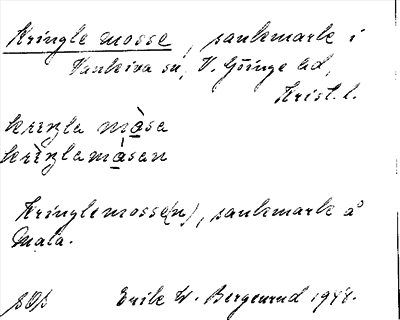 Kringle mosse, sankmark i
Vankiva sn, V. Göinge hd,
Krist. l.
kriŋla måsa
kriŋlamåsan
Kringlemosse(n), sankmark å
Mala.
Erik W. Bergenrud 1948.